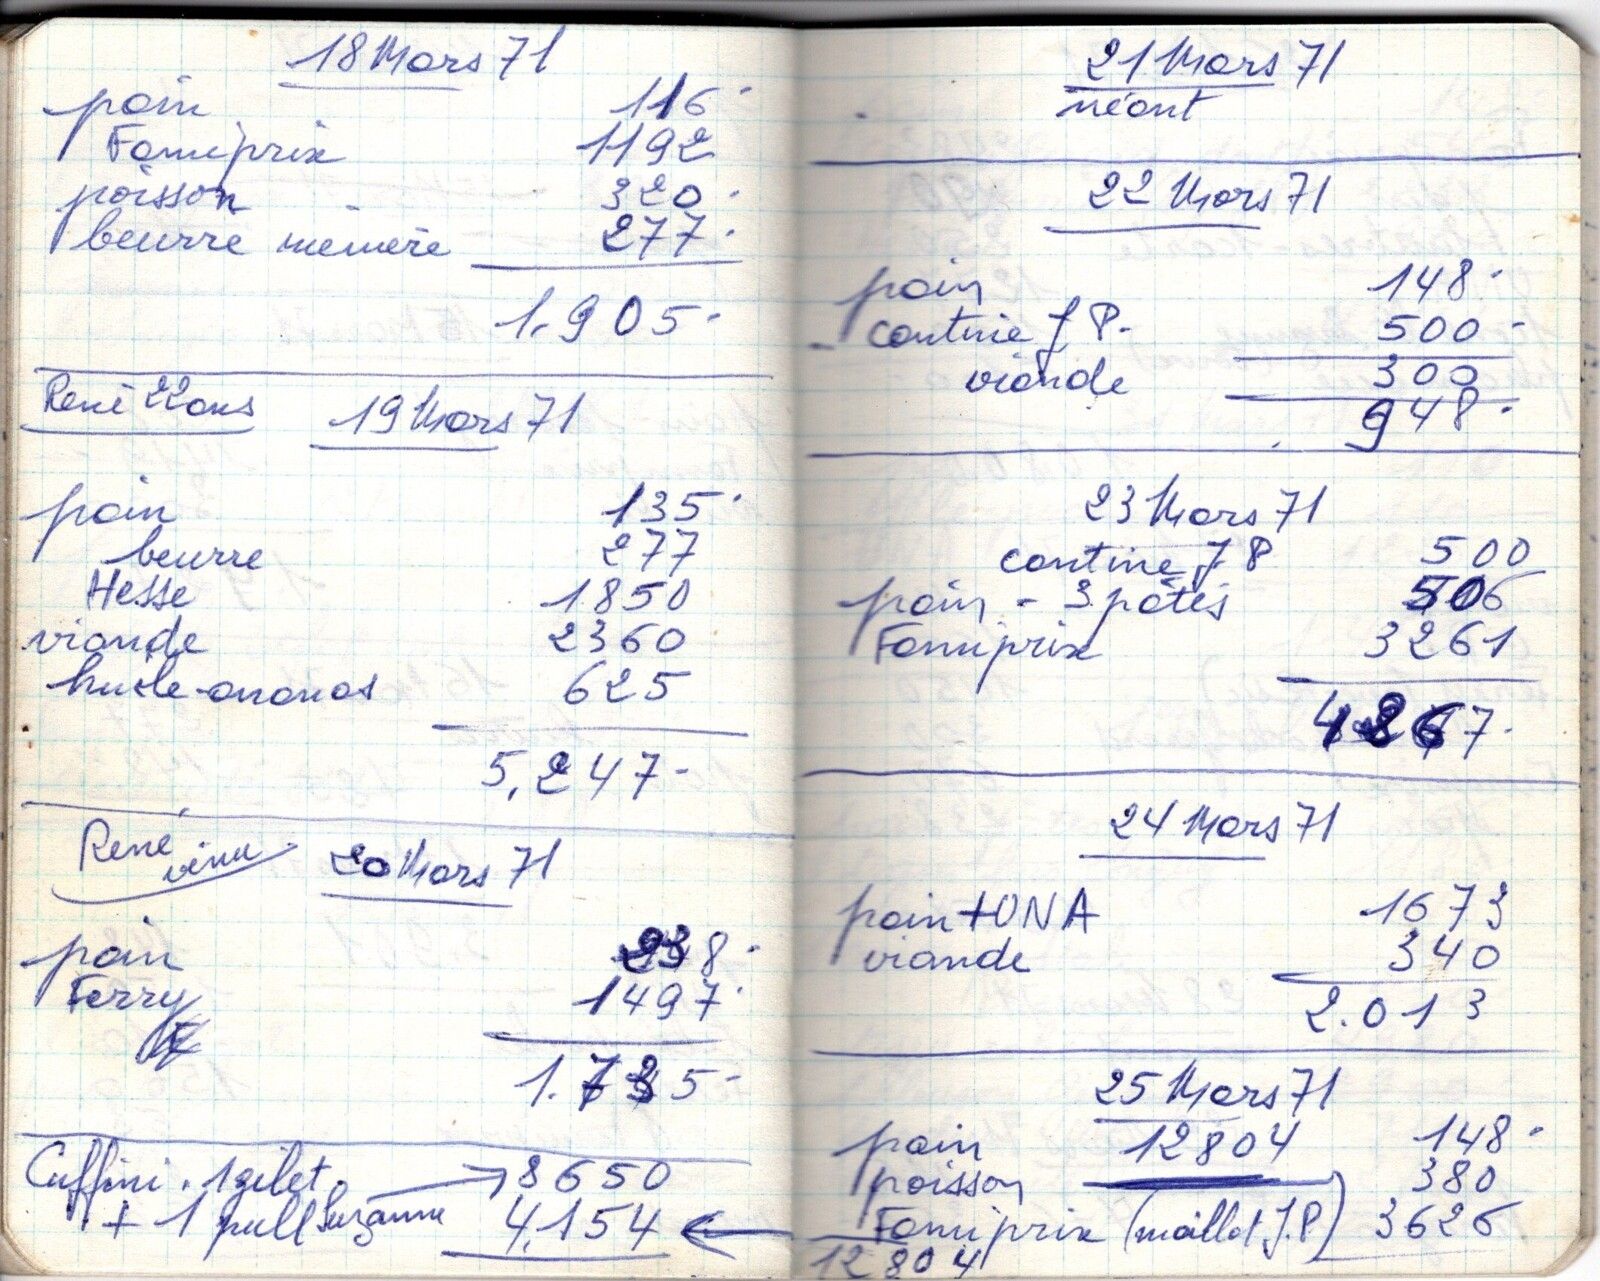 18 Mars 71
pain 116
Famiprix 1192
poisson 320
beurre mémère 277
1.905
René 22 ans 19 Mars 71
pain 135
beurre 277
Hesse 1850
viande 2360
huile-ananas 625
5,247
René vina 20 Mars 71
pain 238
Ferry 1497
1.735
Cuffini. 1 gilet. 8650
+ 1 pull Suzanne 4,154
21 Mars 71
néant
22 Mars 71
pain 148
cantine J P. 500
viande 300
948
23 Mars 71
cantine J P 500
pain - 3 pâtés 506
Famiprix 3261
4267
24 Mars 71
pain + UNA 1673
viande 340
2.013
25 Mars 71
12804
pain 148
poisson 380
Famiprix (maillot J.P) 3626
12 804